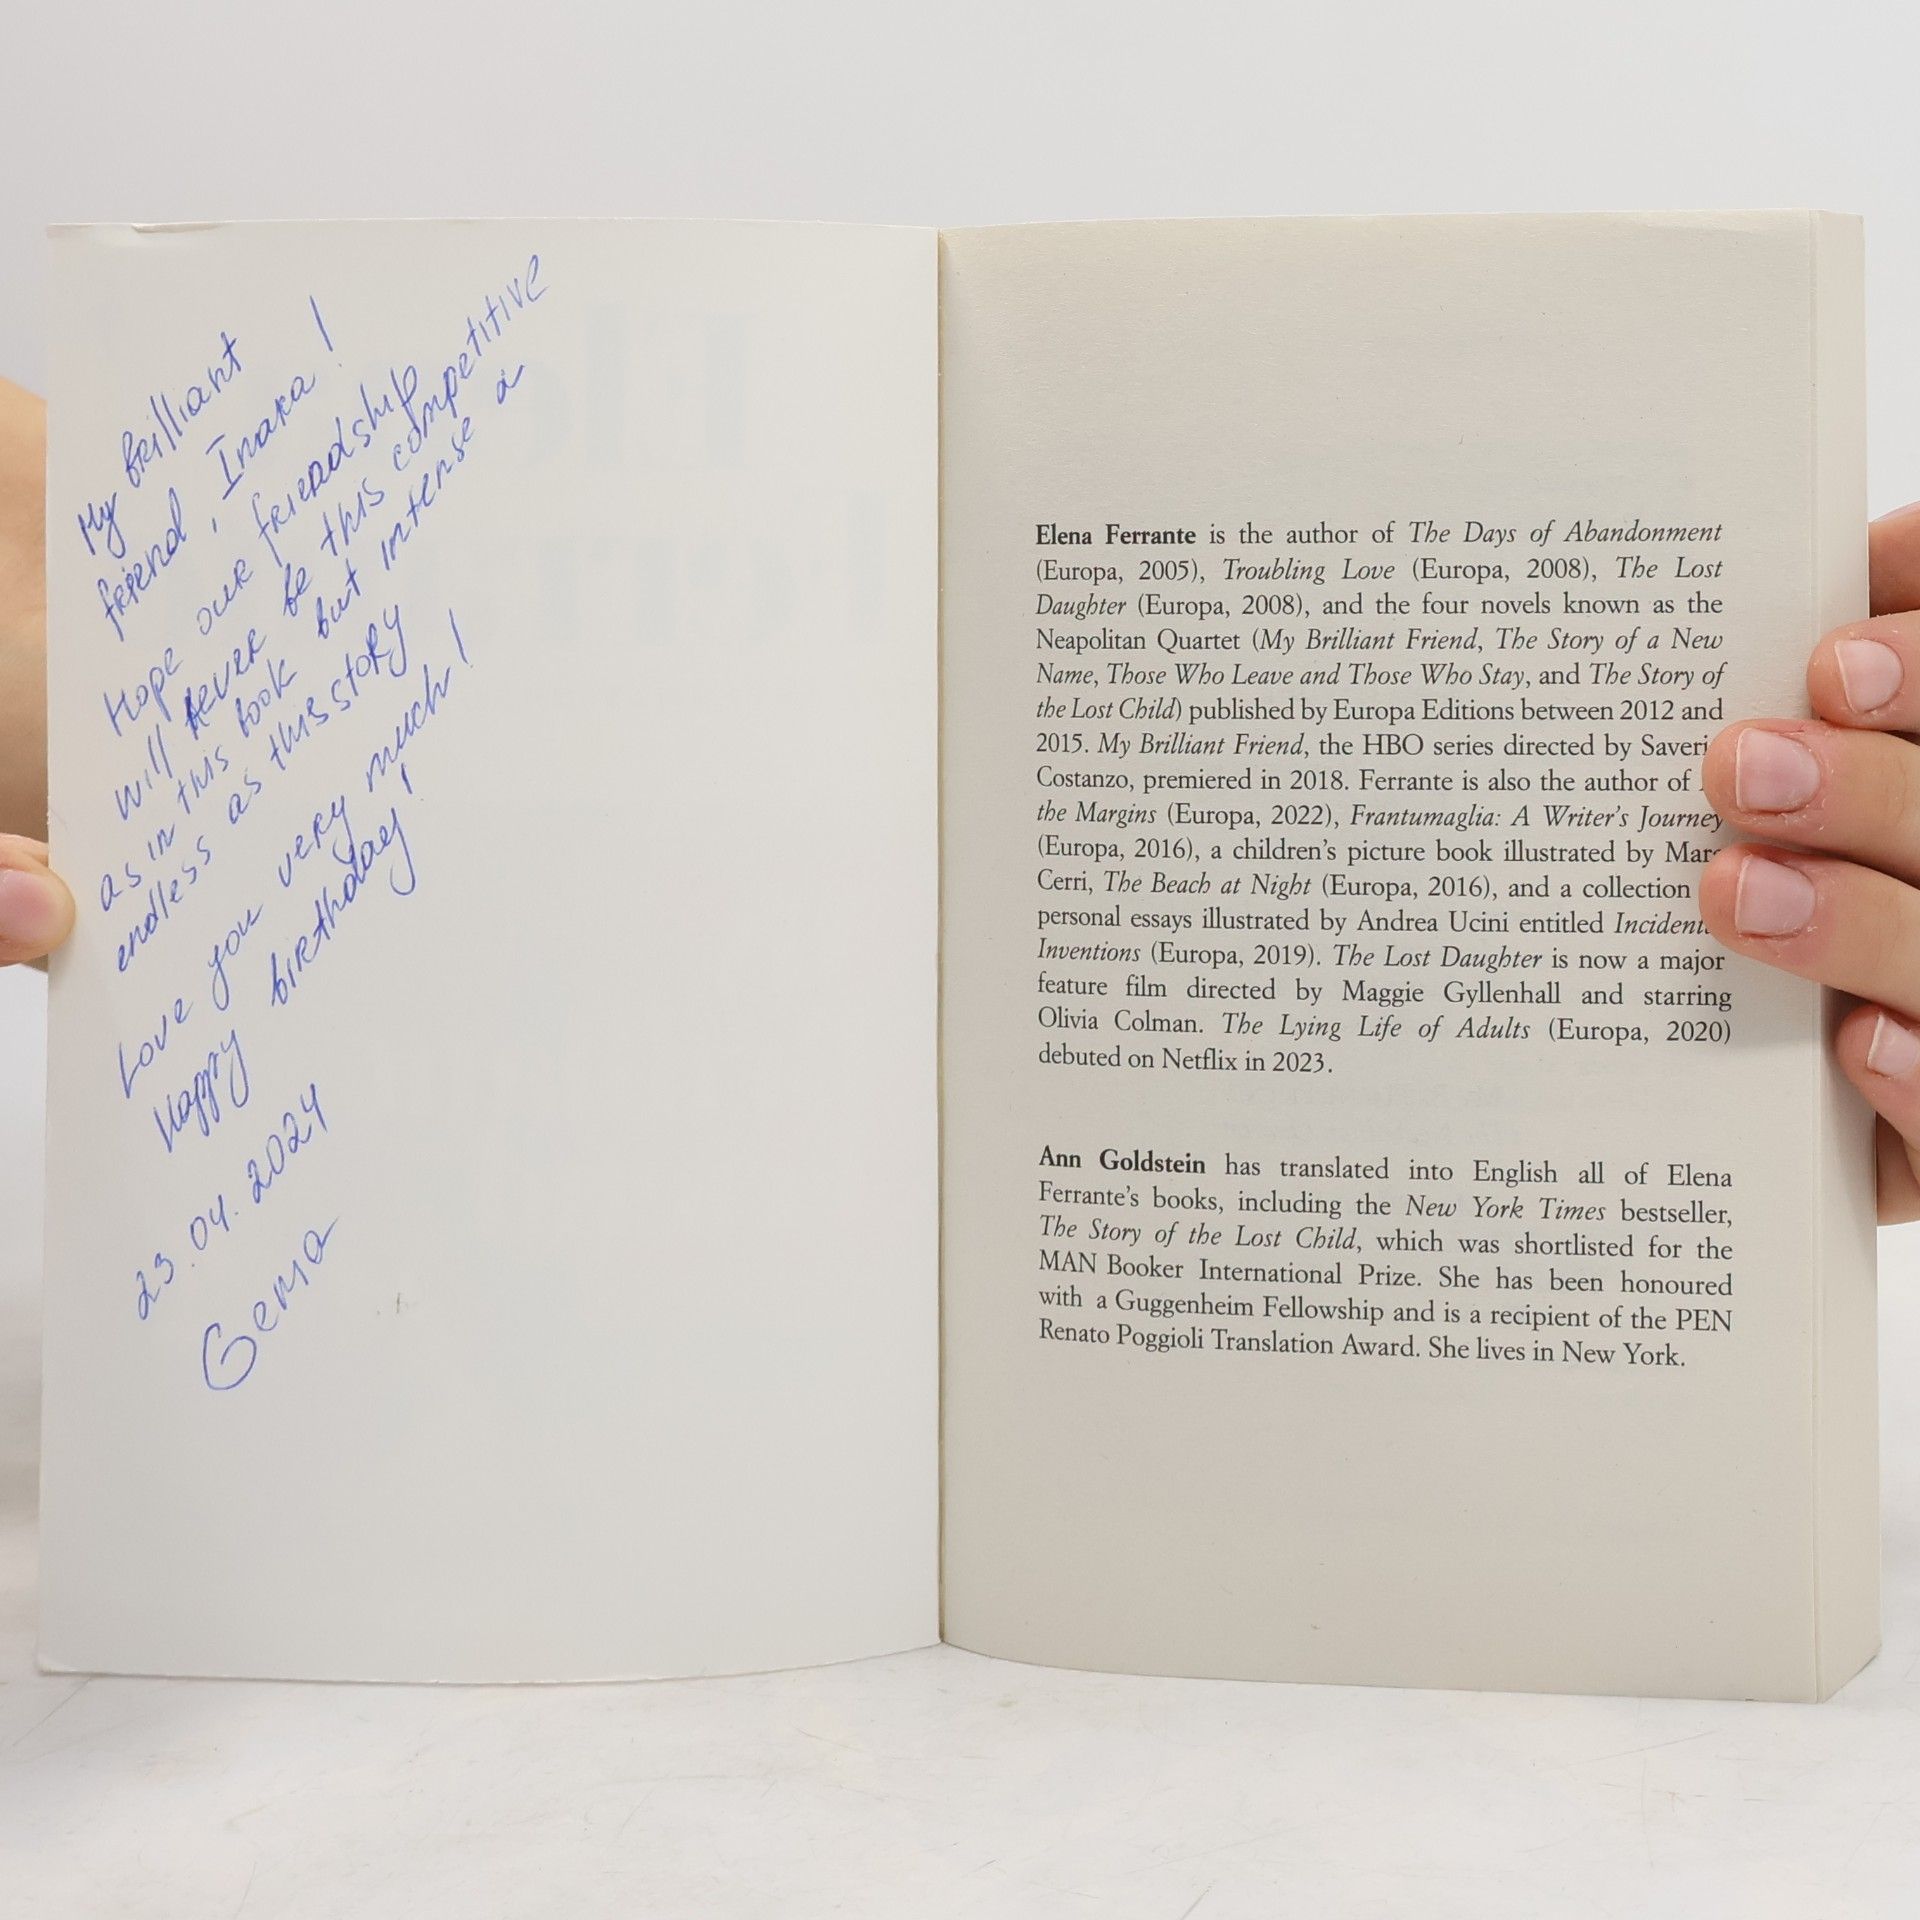 My brilliant
friend, Inara!
Hope our friendship
will never be this competitive
as in this book but intense a
endless as this story
Love you very much!
Happy birthday!
23.04.2024
Gema
Elena Ferrante is the author of The Days of Abandonment
(Europa, 2005), Troubling Love (Europa, 2008), The Lost
Daughter (Europa, 2008), and the four novels known as the
Neapolitan Quartet (My Brilliant Friend, The Story of a New
Name, Those Who Leave and Those Who Stay, and The Story of
the Lost Child) published by Europa Editions between 2012 and
2015. My Brilliant Friend, the HBO series directed by Saveri
Costanzo, premiered in 2018. Ferrante is also the author of
the Margins (Europa, 2022), Frantumaglia: A Writer's Journey
(Europa, 2016), a children's picture book illustrated by Mar
Cerri, The Beach at Night (Europa, 2016), and a collection
personal essays illustrated by Andrea Ucini entitled Incident
Inventions (Europa, 2019). The Lost Daughter is now a major
feature film directed by Maggie Gyllenhall and starring
Olivia Colman. The Lying Life of Adults (Europa, 2020)
debuted on Netflix in 2023.
Ann Goldstein has translated into English all of Elena
Ferrante's books, including the New York Times bestseller,
The Story of the Lost Child, which was shortlisted for the
MAN Booker International Prize. She has been honoured
with a Guggenheim Fellowship and is a recipient of the PEN
Renato Poggioli Translation Award. She lives in New York.